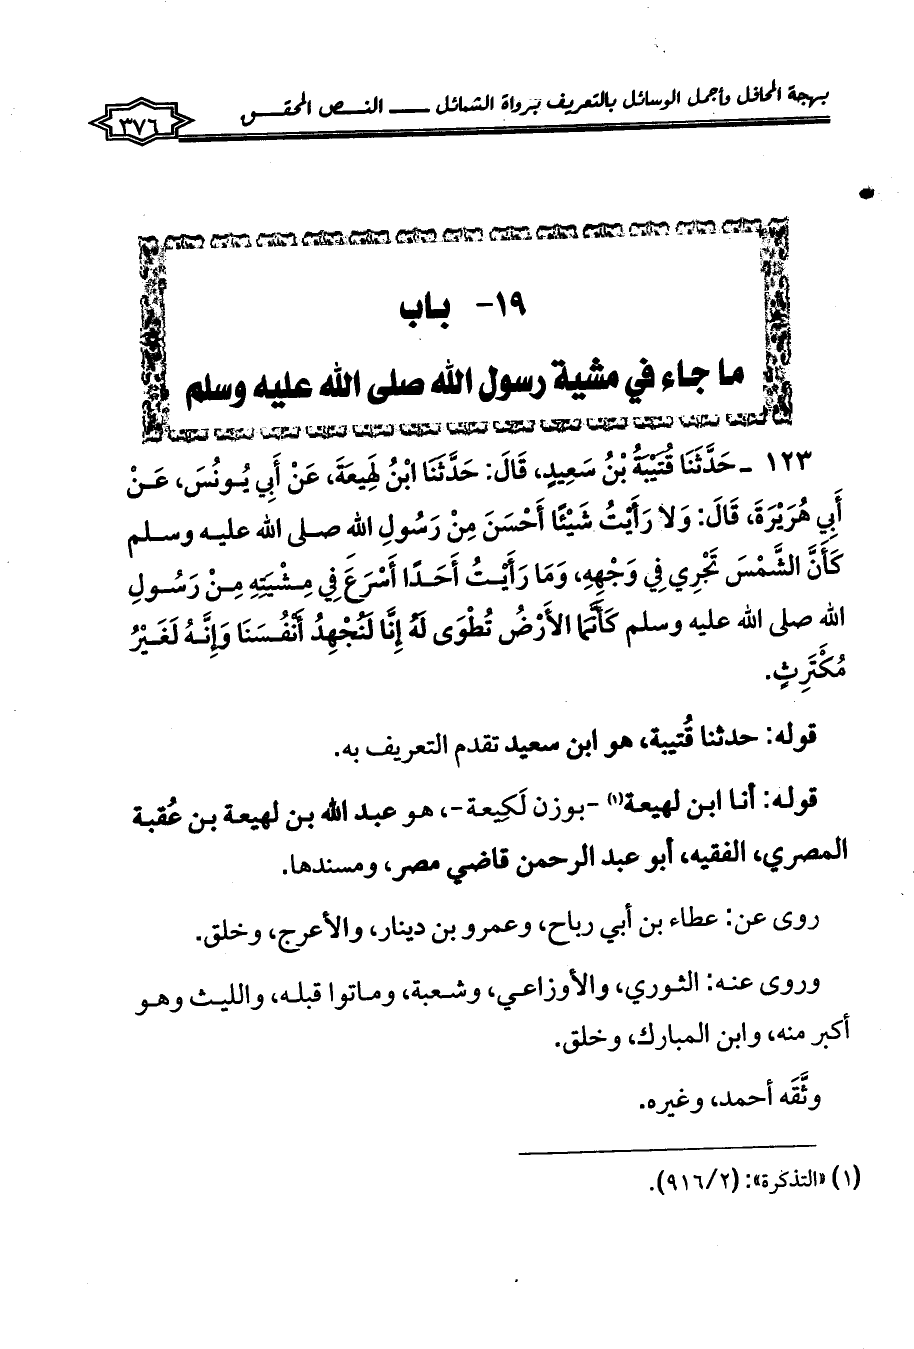 بهجة المحافل وأجمل الوسائل بالتعريف برواة الشمائل ـــ النـــص المحقـــق
٣٧٦
١٩- بـاب
ما جاء في مشية رسول الله صلى الله عليه وسلم
١٢٣ ـ حَدَّثَنَا قُتَيْبَةُ بْنُ سَعِيدٍ، قَالَ: حَدَّثَنَا ابْنُ لَهِيعَةَ، عَنْ أَبِي يُونُسَ، عَنْ
أَبِي هُرَيْرَةَ، قَالَ: وَلا رَأَيْتُ شَيْئًا أَحْسَنَ مِنْ رَسُولِ الله صلى الله عليه وسلم
كَأَنَّ الشَّمْسَ تَجْرِي فِي وَجْهِهِ، وَمَا رَأَيْتُ أَحَدًا أَسْرَعَ فِي مِشْيَتِهِ مِنْ رَسُولِ
الله صلى الله عليه وسلم كَأَنَّمَا الأَرْضُ تُطْوَى لَهُ إِنَّا لَنُجْهِدُ أَنْفُسَنَا وَإِنَّهُ لَغَيْرُ
مُكْتَرِثٍ.
قوله: حدثنا قُتيبة، هو ابن سعيد تقدم التعريف به.
قوله: أنا ابن لهيعة(١) -بوزن لَكِيعة-، هو عبد الله بن لهيعة بن عُقبة
المصري، الفقيه، أبو عبد الرحمن قاضي مصر، ومسندها.
روى عن: عطاء بن أبي رباح، وعمرو بن دينار، والأعرج، وخلق.
وروى عنه: الثوري، والأوزاعي، وشعبة، وماتوا قبله، والليث وهو
أكبر منه، وابن المبارك، وخلق.
وثَّقَه أحمد، وغيره.
(١) «التذكرة»: (٩١٦/٢).